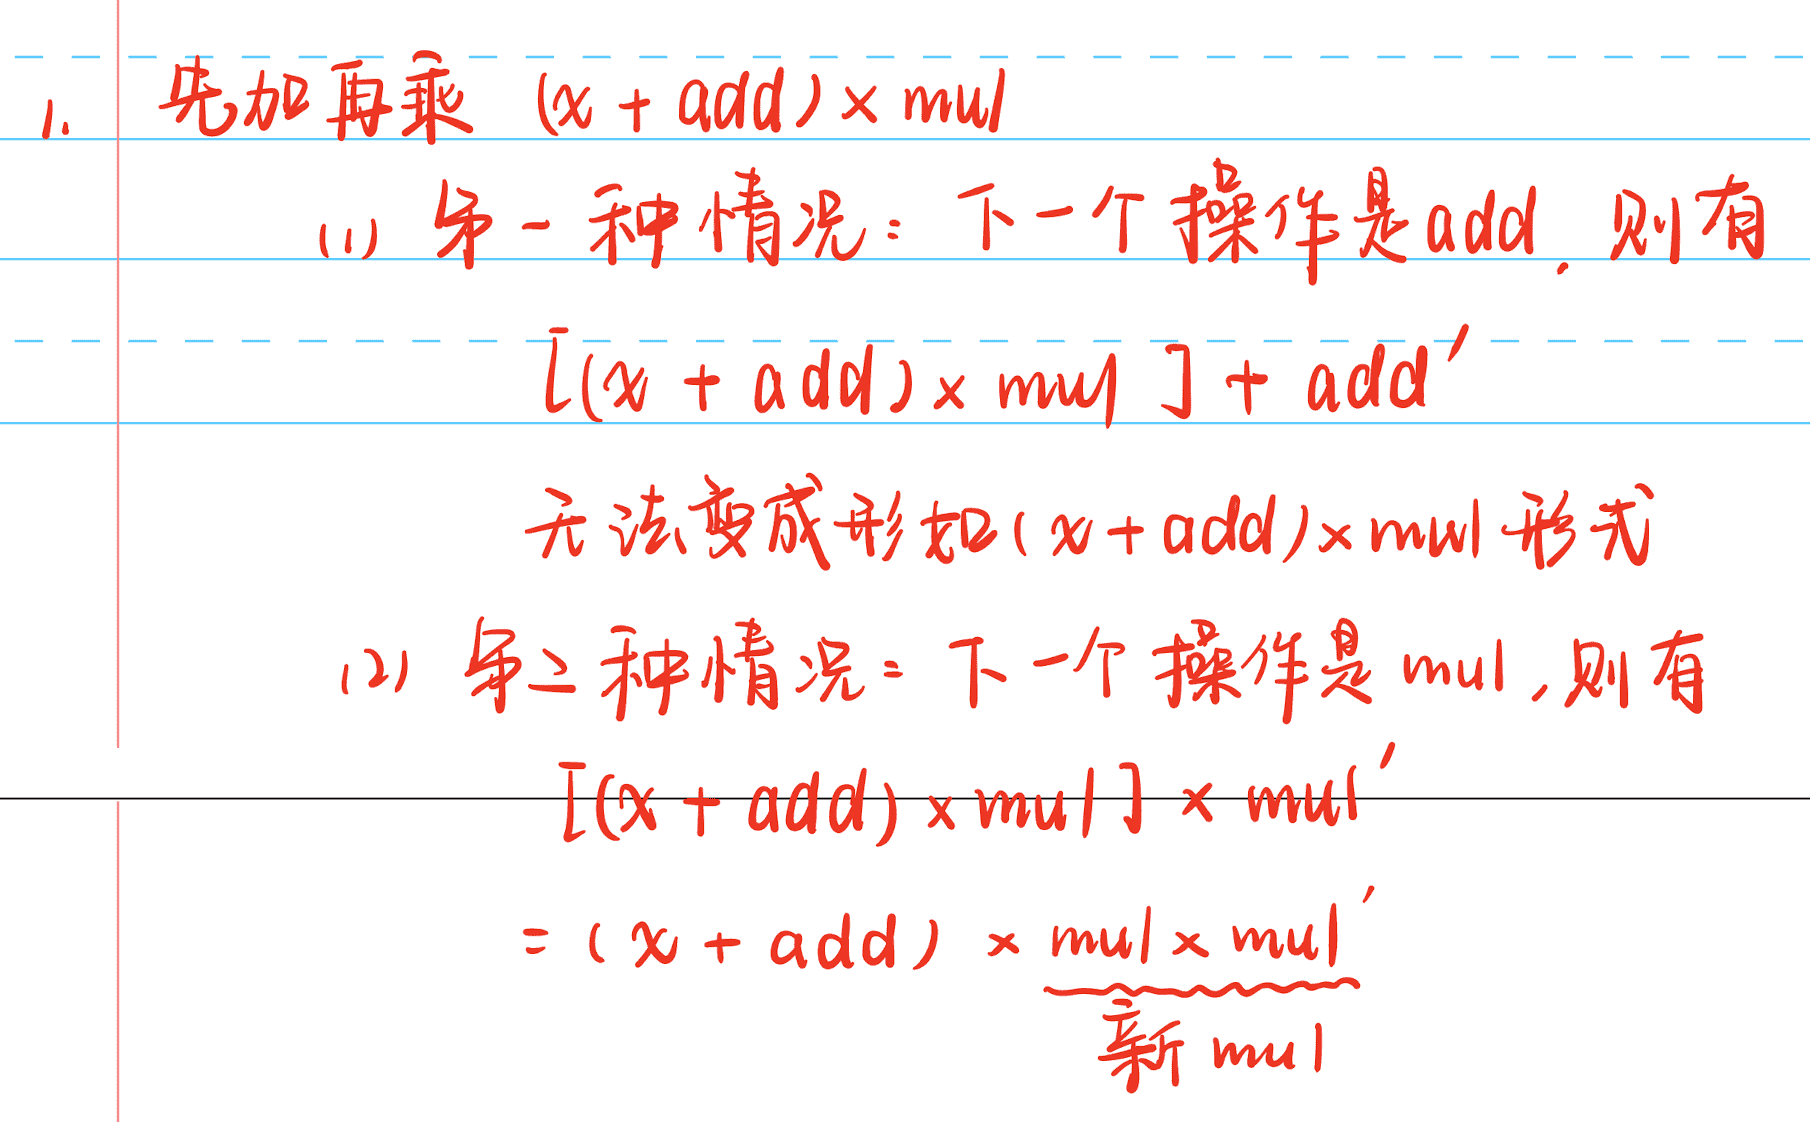 1. 先加再乘 (x + add) × mul
(1) 第一种情况：下一个操作是add，则有
[(x + add) × mul ] + add′
无法变成形如(x + add) × mul 形式
(2) 第二种情况：下一个操作是 mul，则有
[(x + add) × mul] × mul′
= (x + add) × mul × mul′
新 mul